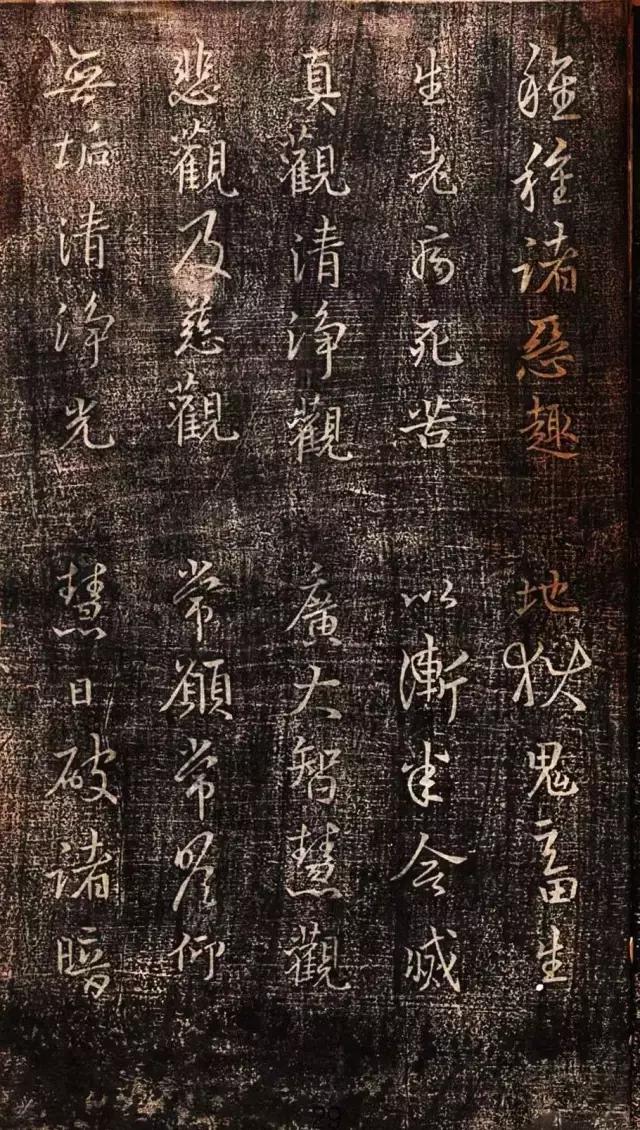 種種諸惡趣 地獄鬼畜生
生老病死苦 以漸悉令滅
真觀清淨觀 廣大智慧觀
悲觀及慈觀 常願常瞻仰
無垢清淨光 慧日破諸暗